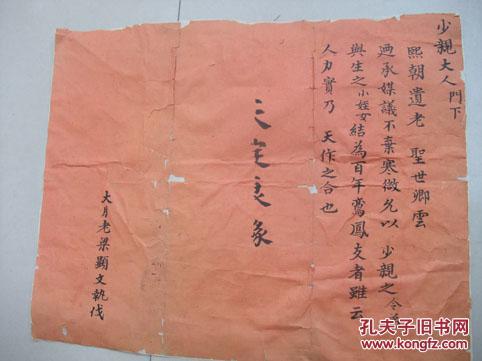 少親大人門下
熙朝遺老 聖世卿雲
廼承媒議不棄寒微允以 少親之令
與生之小姪女結為百年鸞鳳交者雖云
人力實乃 天作之合也
大月老梁顯文執伐
孔夫子旧书网
KONGFZ.COM